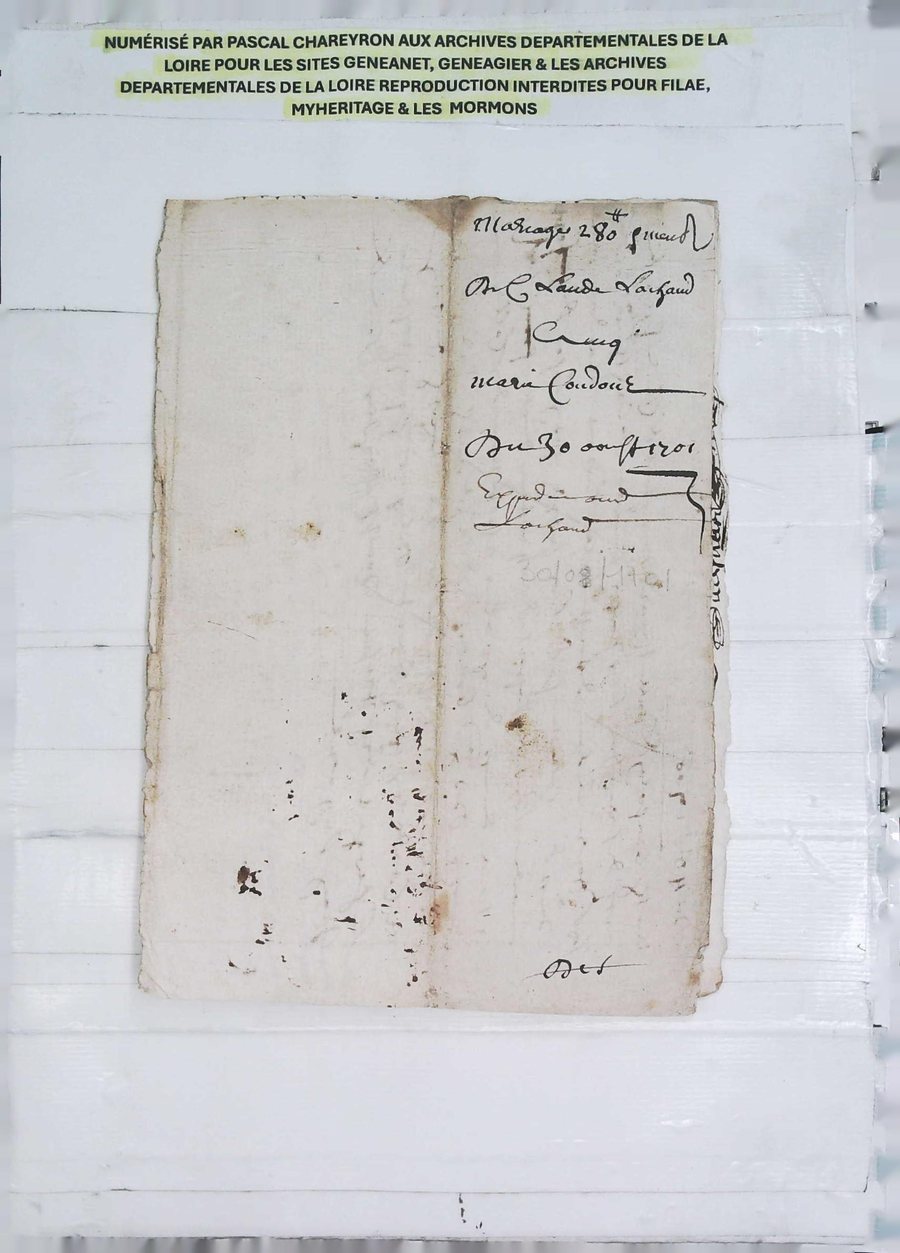 NUMÉRISÉ PAR PASCAL CHAREYRON AUX ARCHIVES DEPARTEMENTALES DE LA
LOIRE POUR LES SITES GENEANET, GENEAGIER & LES ARCHIVES
DEPARTEMENTALES DE LA LOIRE REPRODUCTION INTERDITES POUR FILAE,
MYHERITAGE & LES MORMONS
Mariage 280
De Claude Lachaud
Marie Coudour
Du 30 aoust 1701
Expedie
Lachaud
30/08/1701